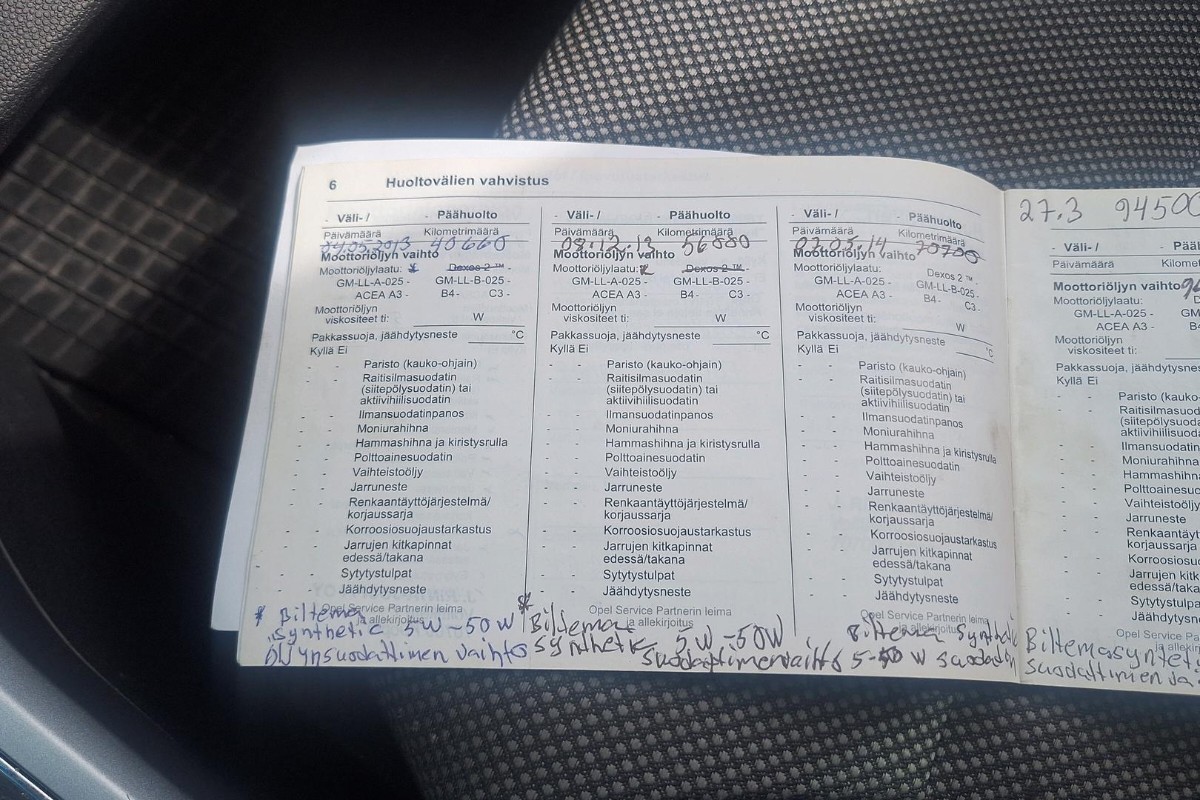 6 Huoltovälien vahvistus
- Väli- / - Päähuolto
Päivämäärä Kilometrimäärä
04.05.2013 40660
Moottoriöljyn vaihto
Moottoriöljylaatu: * Dexos 2 ™ -
GM-LL-A-025 - GM-LL-B-025 -
ACEA A3 - B4 - C3 -
Moottoriöljyn
viskositeet ti: W
Pakkassuoja, jäähdytysneste °C
Kyllä Ei
- - Paristo (kauko-ohjain)
- - Raitisilmasuodatin
(siitepölysuodatin) tai
aktiivihiilisuodatin
- - Ilmansuodatinpanos
- - Moniurahihna
- - Hammashihna ja kiristysrulla
- - Polttoainesuodatin
- - Vaihteistoöljy
- - Jarruneste
- - Renkaantäyttöjärjestelmä/
korjaussarja
- - Korroosiosuojaustarkastus
- - Jarrujen kitkapinnat
edessä/takana
- - Sytytystulpat
- - Jäähdytysneste
Opel Service Partnerin leima
ja allekirjoitus
* Biltema
synthetic 5W-50W
öljynsuodattimen vaihto
- Väli- / - Päähuolto
Päivämäärä Kilometrimäärä
08.12.13 56880
Moottoriöljyn vaihto
Moottoriöljylaatu: * Dexos 2 ™ -
GM-LL-A-025 - GM-LL-B-025 -
ACEA A3 - B4 - C3 -
Moottoriöljyn
viskositeet ti: W
Pakkassuoja, jäähdytysneste °C
Kyllä Ei
- - Paristo (kauko-ohjain)
- - Raitisilmasuodatin
(siitepölysuodatin) tai
aktiivihiilisuodatin
- - Ilmansuodatinpanos
- - Moniurahihna
- - Hammashihna ja kiristysrulla
- - Polttoainesuodatin
- - Vaihteistoöljy
- - Jarruneste
- - Renkaantäyttöjärjestelmä/
korjaussarja
- - Korroosiosuojaustarkastus
- - Jarrujen kitkapinnat
edessä/takana
- - Sytytystulpat
- - Jäähdytysneste
Opel Service Partnerin leima
* Biltema
synthetic 5W-50W
suodattimenvaihto
- Väli- / - Päähuolto
Päivämäärä Kilometrimäärä
02.05.14 70700
Moottoriöljyn vaihto
Moottoriöljylaatu: Dexos 2 ™ -
GM-LL-A-025 - GM-LL-B-025 -
ACEA A3 - B4 - C3 -
Moottoriöljyn
viskositeet ti: W
Pakkassuoja, jäähdytysneste °C
Kyllä Ei
- - Paristo (kauko-ohjain)
- - Raitisilmasuodatin
(siitepölysuodatin) tai
aktiivihiilisuodatin
- - Ilmansuodatinpanos
- - Moniurahihna
- - Hammashihna ja kiristysrulla
- - Polttoainesuodatin
- - Vaihteistoöljy
- - Jarruneste
- - Renkaantäyttöjärjestelmä/
korjaussarja
- - Korroosiosuojaustarkastus
- - Jarrujen kitkapinnat
edessä/takana
- - Sytytystulpat
- - Jäähdytysneste
Opel Service Partnerin leima
ja allekirjoitus
Biltema Synthetic
5-50 W
27.3 94500
- Väli- /
Päivämäärä
Moottoriöljyn vaihto
Moottoriöljylaatu:
GM-LL-A-025 - GM-
ACEA A3 -
Moottoriöljyn
viskositeet ti:
Pakkassuoja,
Kyllä Ei
- - Paristo
- - Raitisilmasuodatin
(siitepölysuodatin)
aktiivihiilisuodatin
- - Ilmansuodatin
- - Moniurahihna
- - Hammashihna
- - Polttoainesuodatin
- - Vaihteistoöljy
- - Jarruneste
- - Renkaantäyttöjärjestelmä
korjaussarja
- - Korroosio
- - Jarrujen kitk
edessä/takana
- - Sytytystulpat
- - Jäähdytys
Opel Service
Biltema